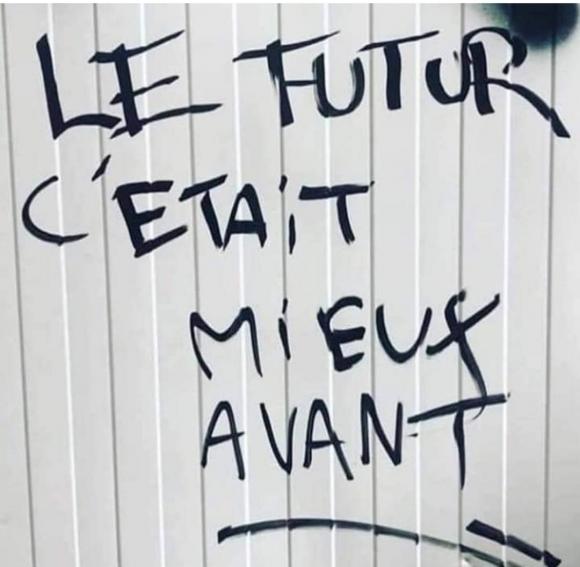 LE FUTUR
C'ETAiT
MiEUX
AVANT